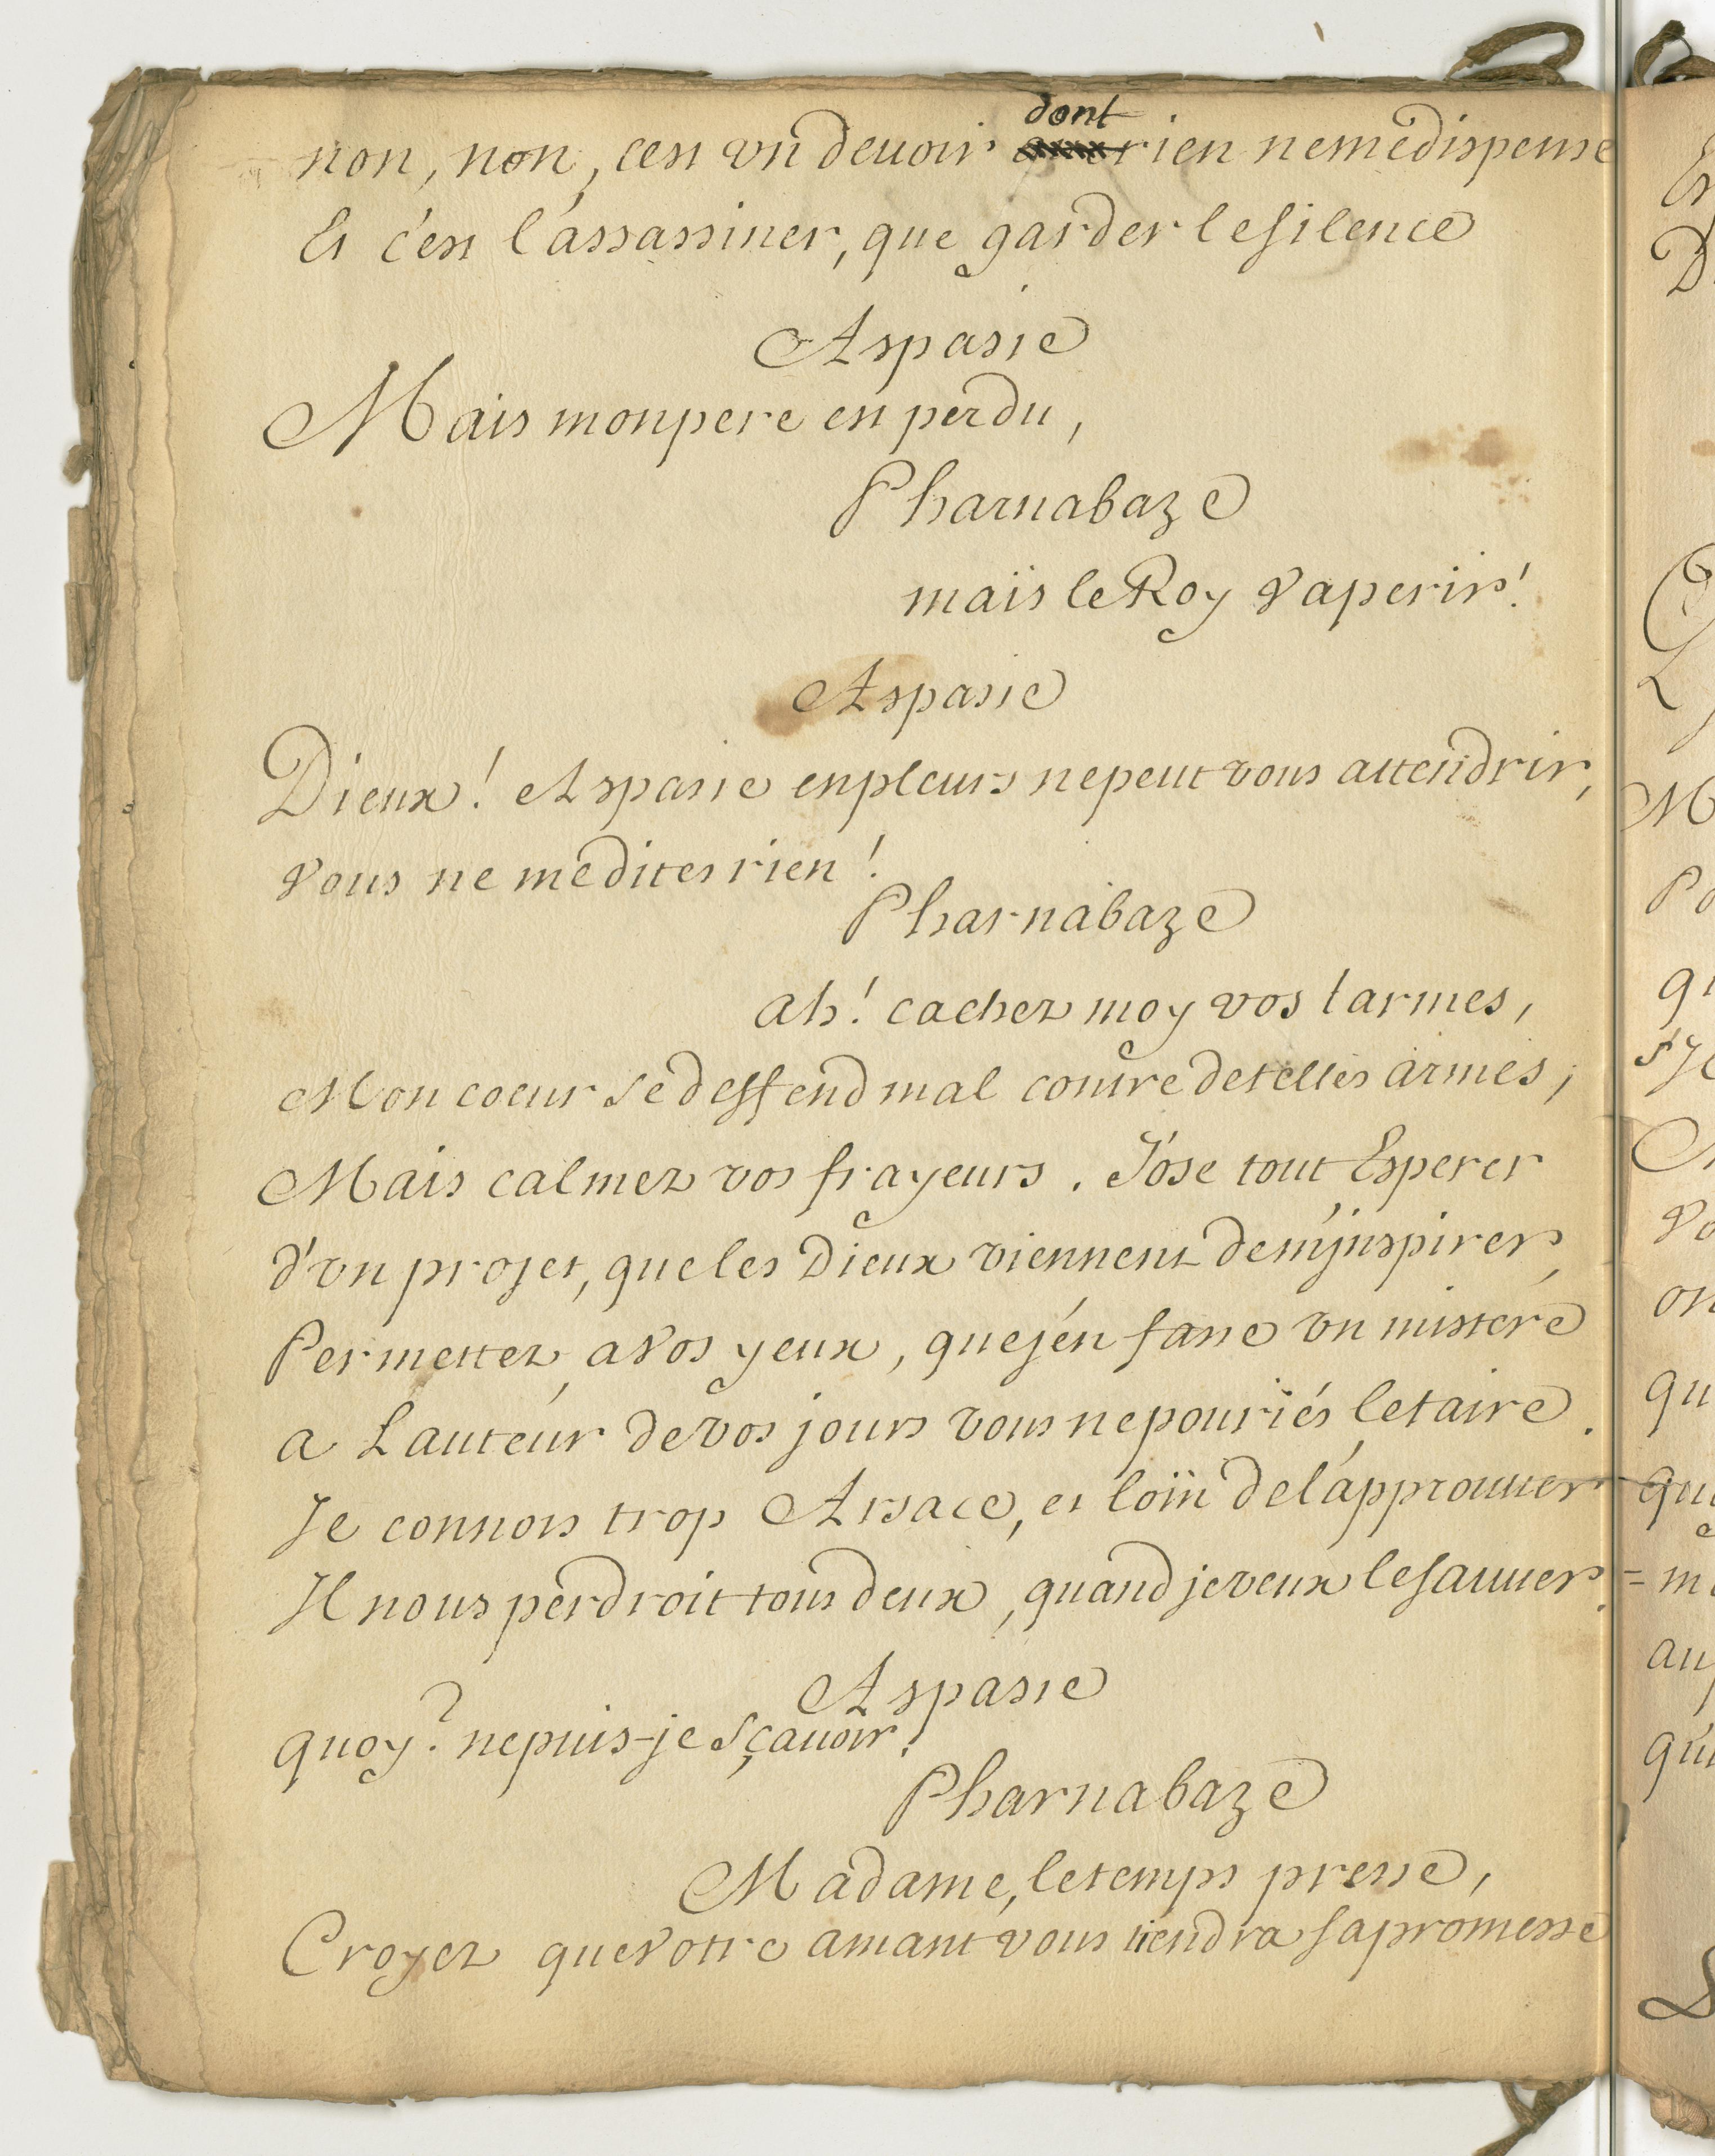 non, non, cest vn deuoir dont rien ne me dispense
Et c'est l'assassiner, que garder le silence
Aspasie
Mais mon pere est perdu,
Pharnabaze
mais le Roy va perir!
Aspasie
Dieux! Aspasie en pleurs ne peut vous attendrir,
vous ne me dites rien!
Pharnabaze
ah! cachez moy vos larmes,
Mon coeur se deffend mal contre de telles armes,
Mais calmez vos frayeurs. J'ose tout Esperer
d'vn projet, que les Dieux viennent de m'jnspirer,
Permettez, a vos yeux, que j'en fasse vn mistere
a Lauteur de vos jours vous ne pouriés le taire.
Je connois trop Arsace, et loin de l'approuuer
Il nous perdroit tous deux, quand je veux le sauuer.
Aspasie
quoy? ne puis-je sçauoir!
Pharnabaze
Madame, le temps presse,
Croyez que votre amant vous tiendra sa promesse